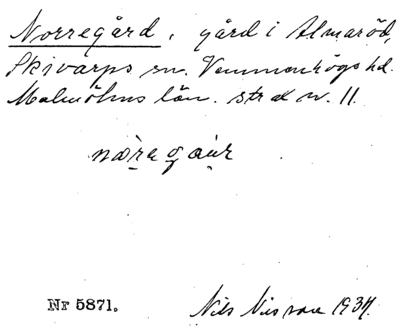 Norregård, gård i Almaröd,
Skivarps sn. Vemmenhögs hd.
Malmöhus län. str ax nr. 11.
nǫregɑur
Nr 5871.
Nils Nilsson 1934.